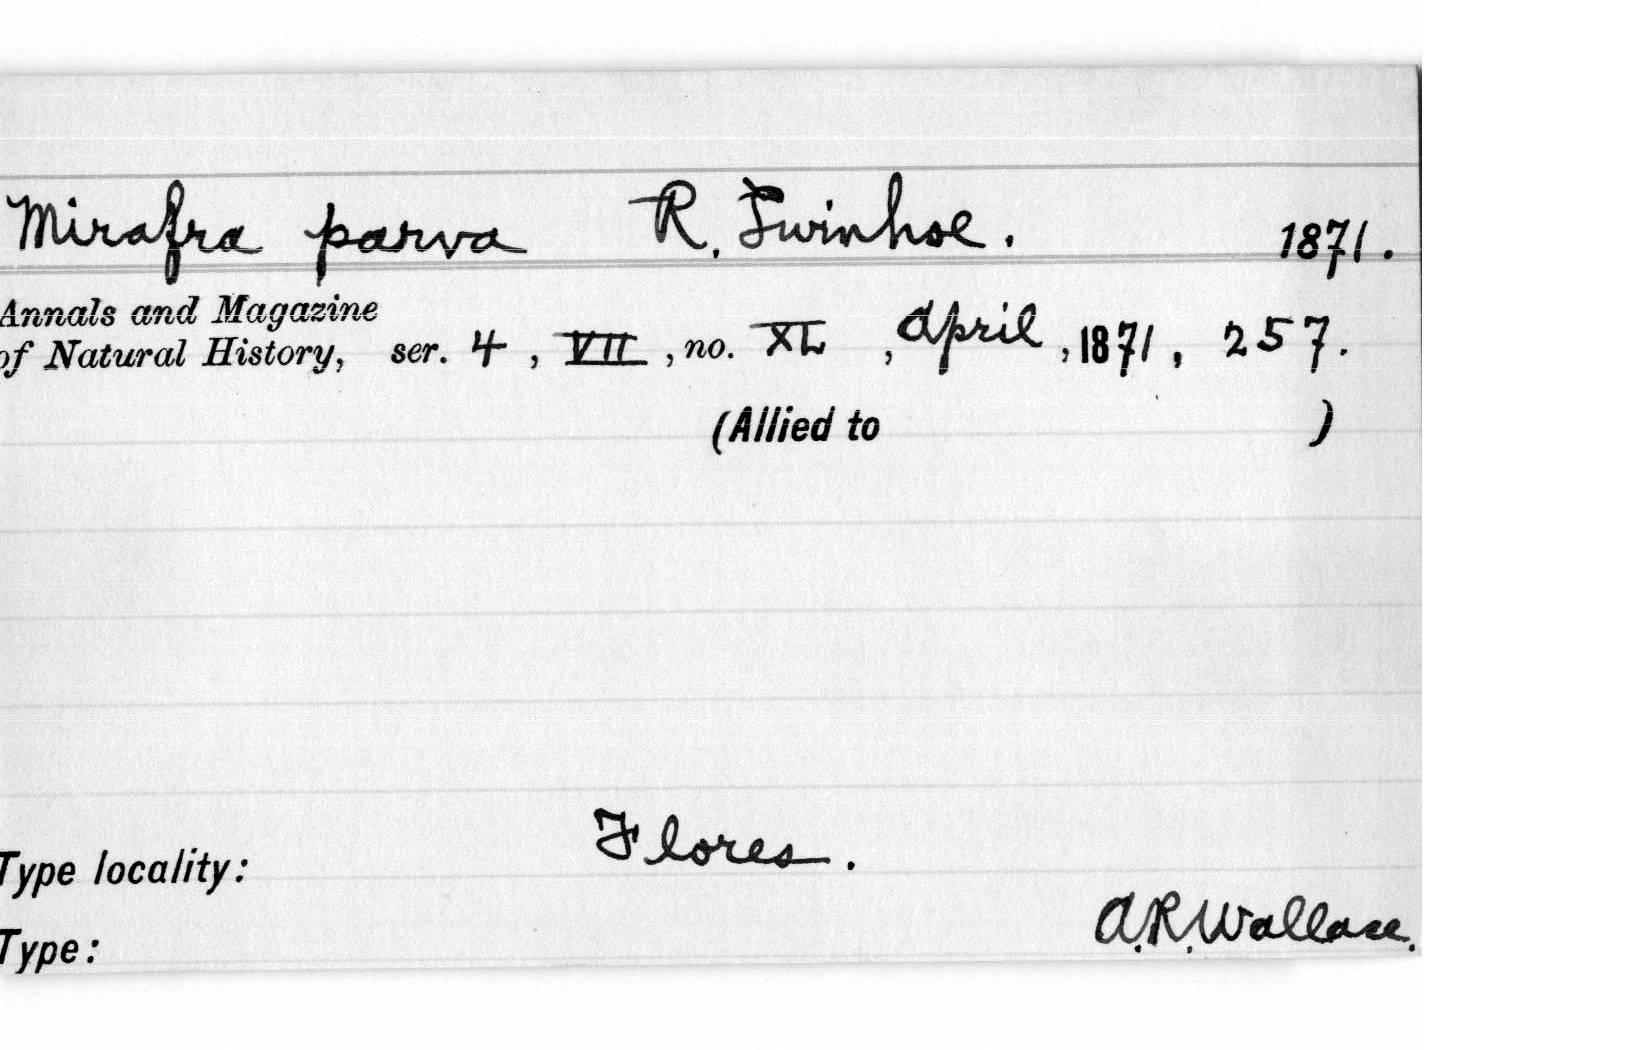 Mirafra parva R. Swinhoe. 1871.
Annals and Magazine
of Natural History, ser. 4, VII, no. XL, April, 1871, 257.
(Allied to )
Flores.
Type locality:
A.R. Wallace.
Type: